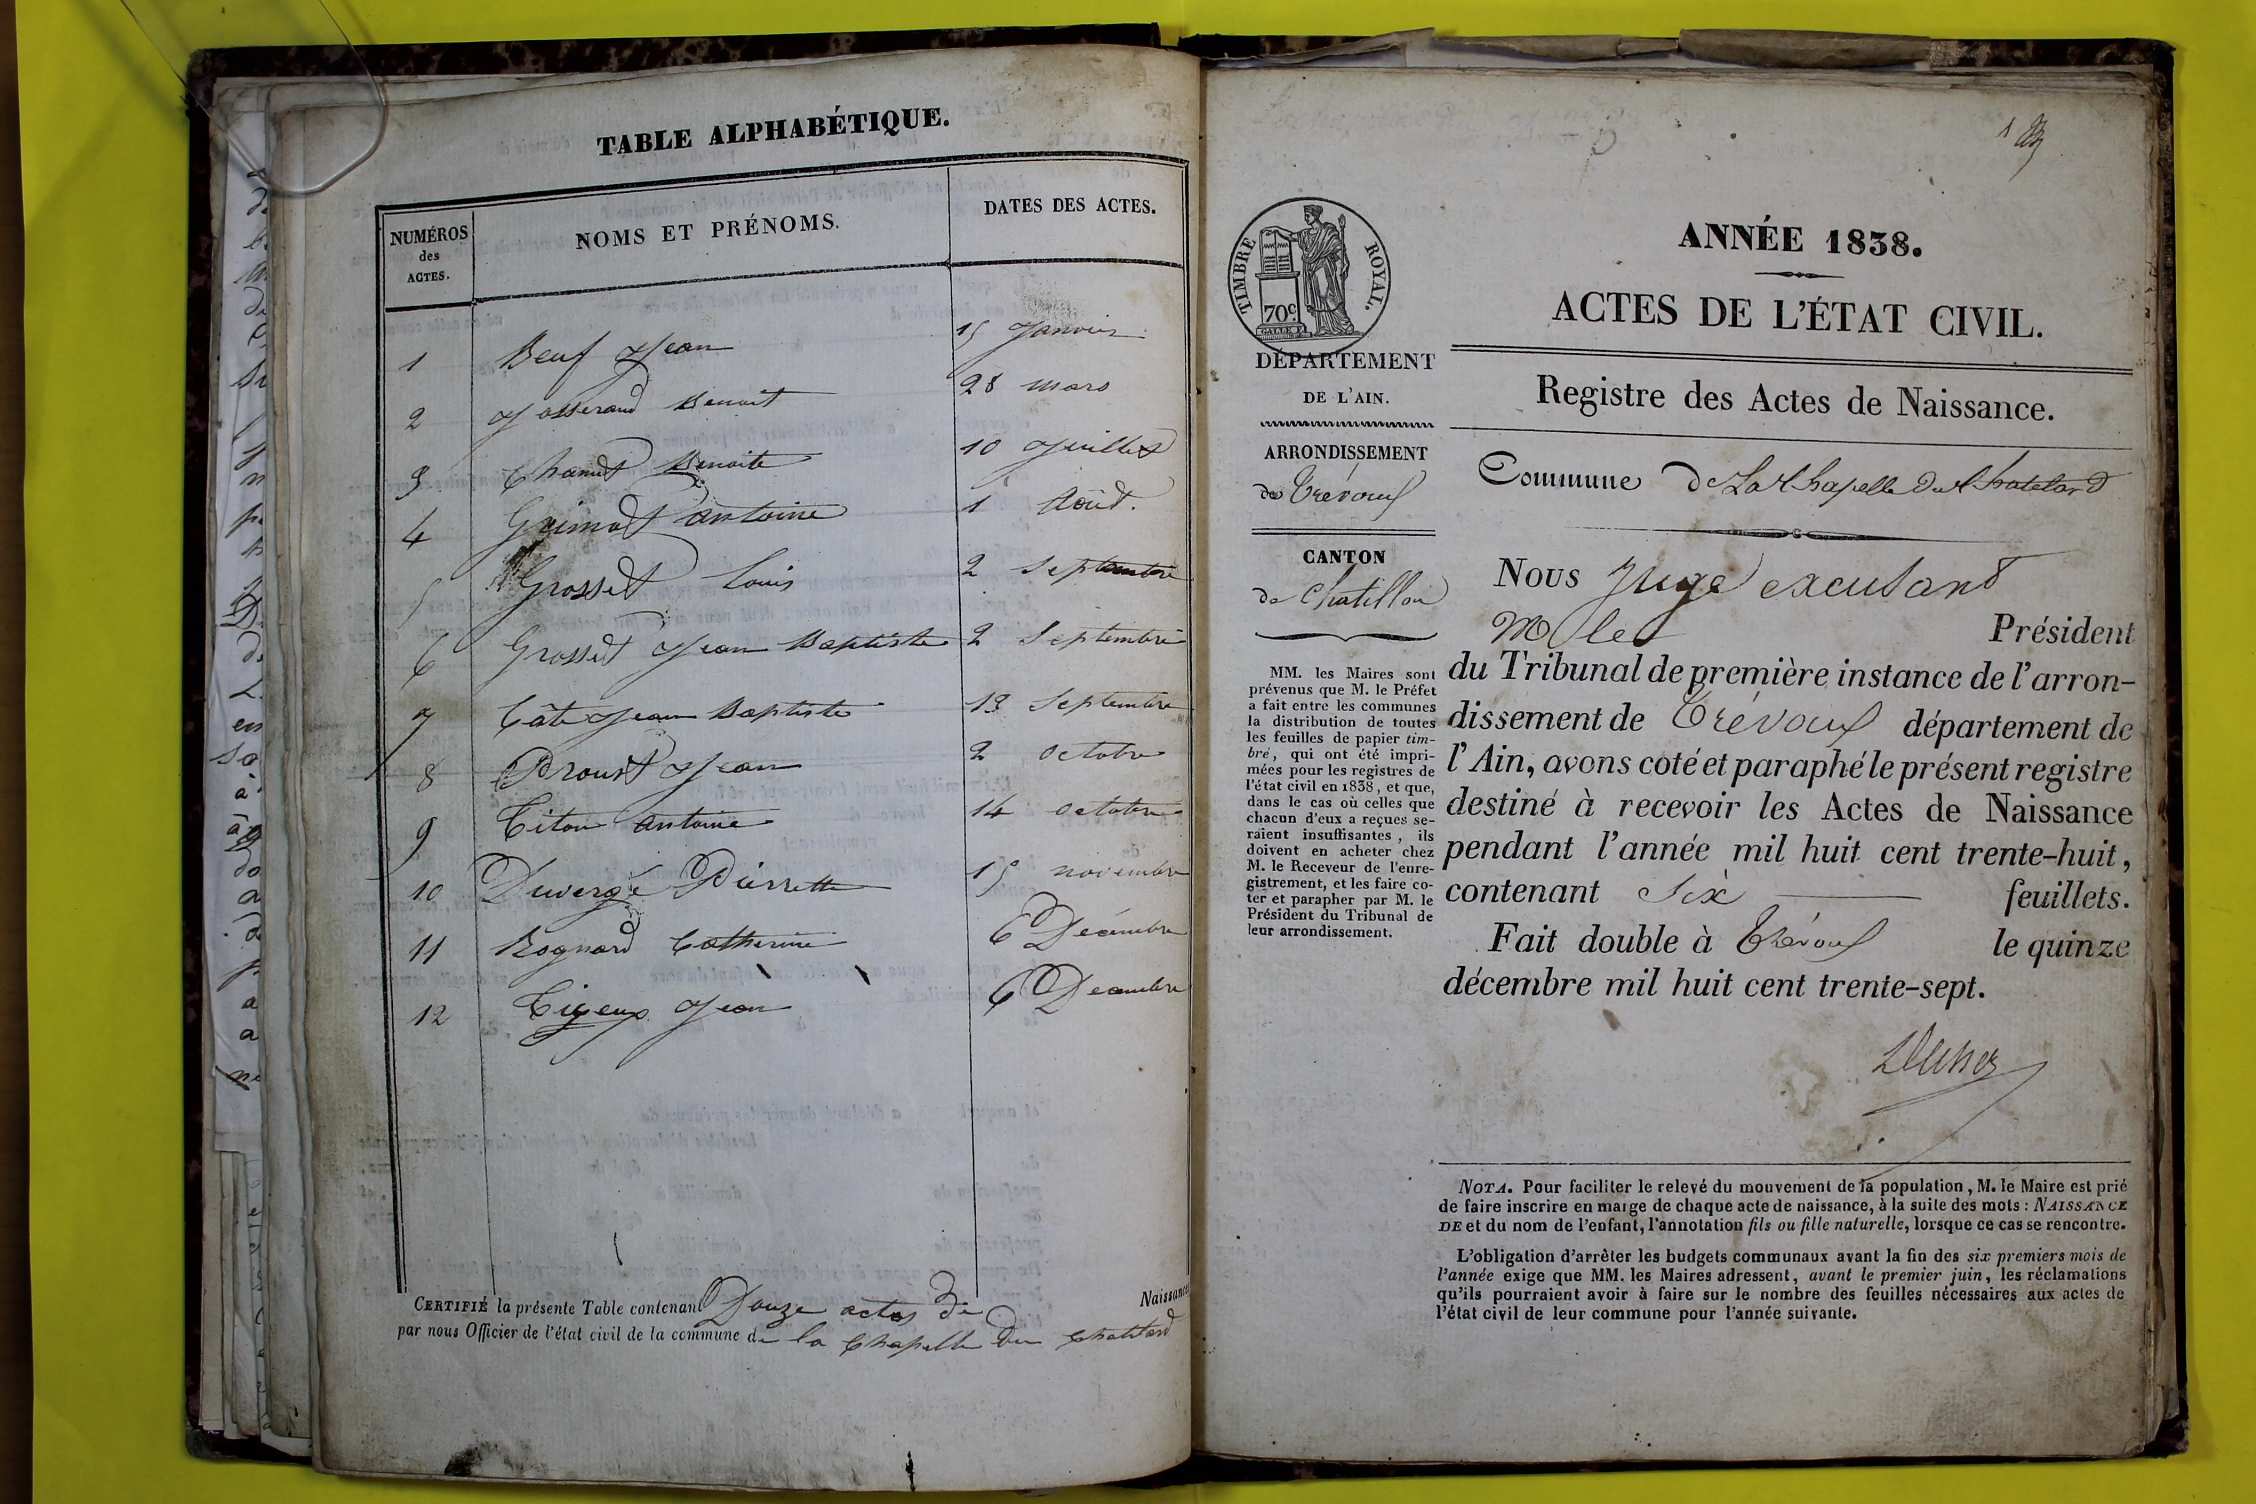 TABLE ALPHABÉTIQUE.
NUMÉROS
des
ACTES.
NOMS ET PRÉNOMS.
DATES DES ACTES.
1 Beuf Jean 15 Janvier
2 Josserand Benoit 28 mars
3 Chanut Benoite 10 Juillet
4 Guimet Antoine 1 Août.
5 Grosset Louis 2 Septembre
6 Grosset Jean Baptiste 2 Septembre
7 Jean Baptiste 13 Septembre
8 Proust Jean 2 octobre
9 Titon Antoine 14 octobre
10 Duvergé Pierrette 15 novembre
11 Rognard Catherine 6 Décembre
12 Jean 6 Décembre
CERTIFIÉ la présente Table contenant Douze actes de Naissance
par nous Officier de l'état civil de la commune de la Chapelle Du Chatelard
1
TIMBRE ROYAL.
70c.
DÉPARTEMENT
DE L'AIN.
ARRONDISSEMENT
de Trévoux
CANTON
de Chatillon
MM. les Maires sont
prévenus que M. le Préfet
a fait entre les communes
la distribution de toutes
les feuilles de papier tim-
bré, qui ont été impri-
mées pour les registres de
l'état civil en 1838, et que,
dans le cas où celles que
chacun d'eux a reçues se-
raient insuffisantes, ils
doivent en acheter chez
M. le Receveur de l'enre-
gistrement, et les faire co-
ter et parapher par M. le
Président du Tribunal de
leur arrondissement.
ANNÉE 1838.
ACTES DE L'ÉTAT CIVIL.
Registre des Actes de Naissance.
Commune De La Chapelle Du Chatelard
Nous Juge excusant
M le Président
du Tribunal de première instance de l'arron-
dissement de Trévoux département de
l'Ain, avons coté et paraphé le présent registre
destiné à recevoir les Actes de Naissance
pendant l'année mil huit cent trente-huit,
contenant Six feuillets.
Fait double à Trévoux le quinze
décembre mil huit cent trente-sept.
NOTA. Pour faciliter le relevé du mouvement de la population, M. le Maire est prié
de faire inscrire en marge de chaque acte de naissance, à la suite des mots: NAISSANCE
DE et du nom de l'enfant, l'annotation fils ou fille naturelle, lorsque ce cas se rencontre.
L'obligation d'arrêter les budgets communaux avant la fin des six premiers mois de
l'année exige que MM. les Maires adressent, avant le premier juin, les réclamations
qu'ils pourraient avoir à faire sur le nombre des feuilles nécessaires aux actes de
l'état civil de leur commune pour l'année suivante.